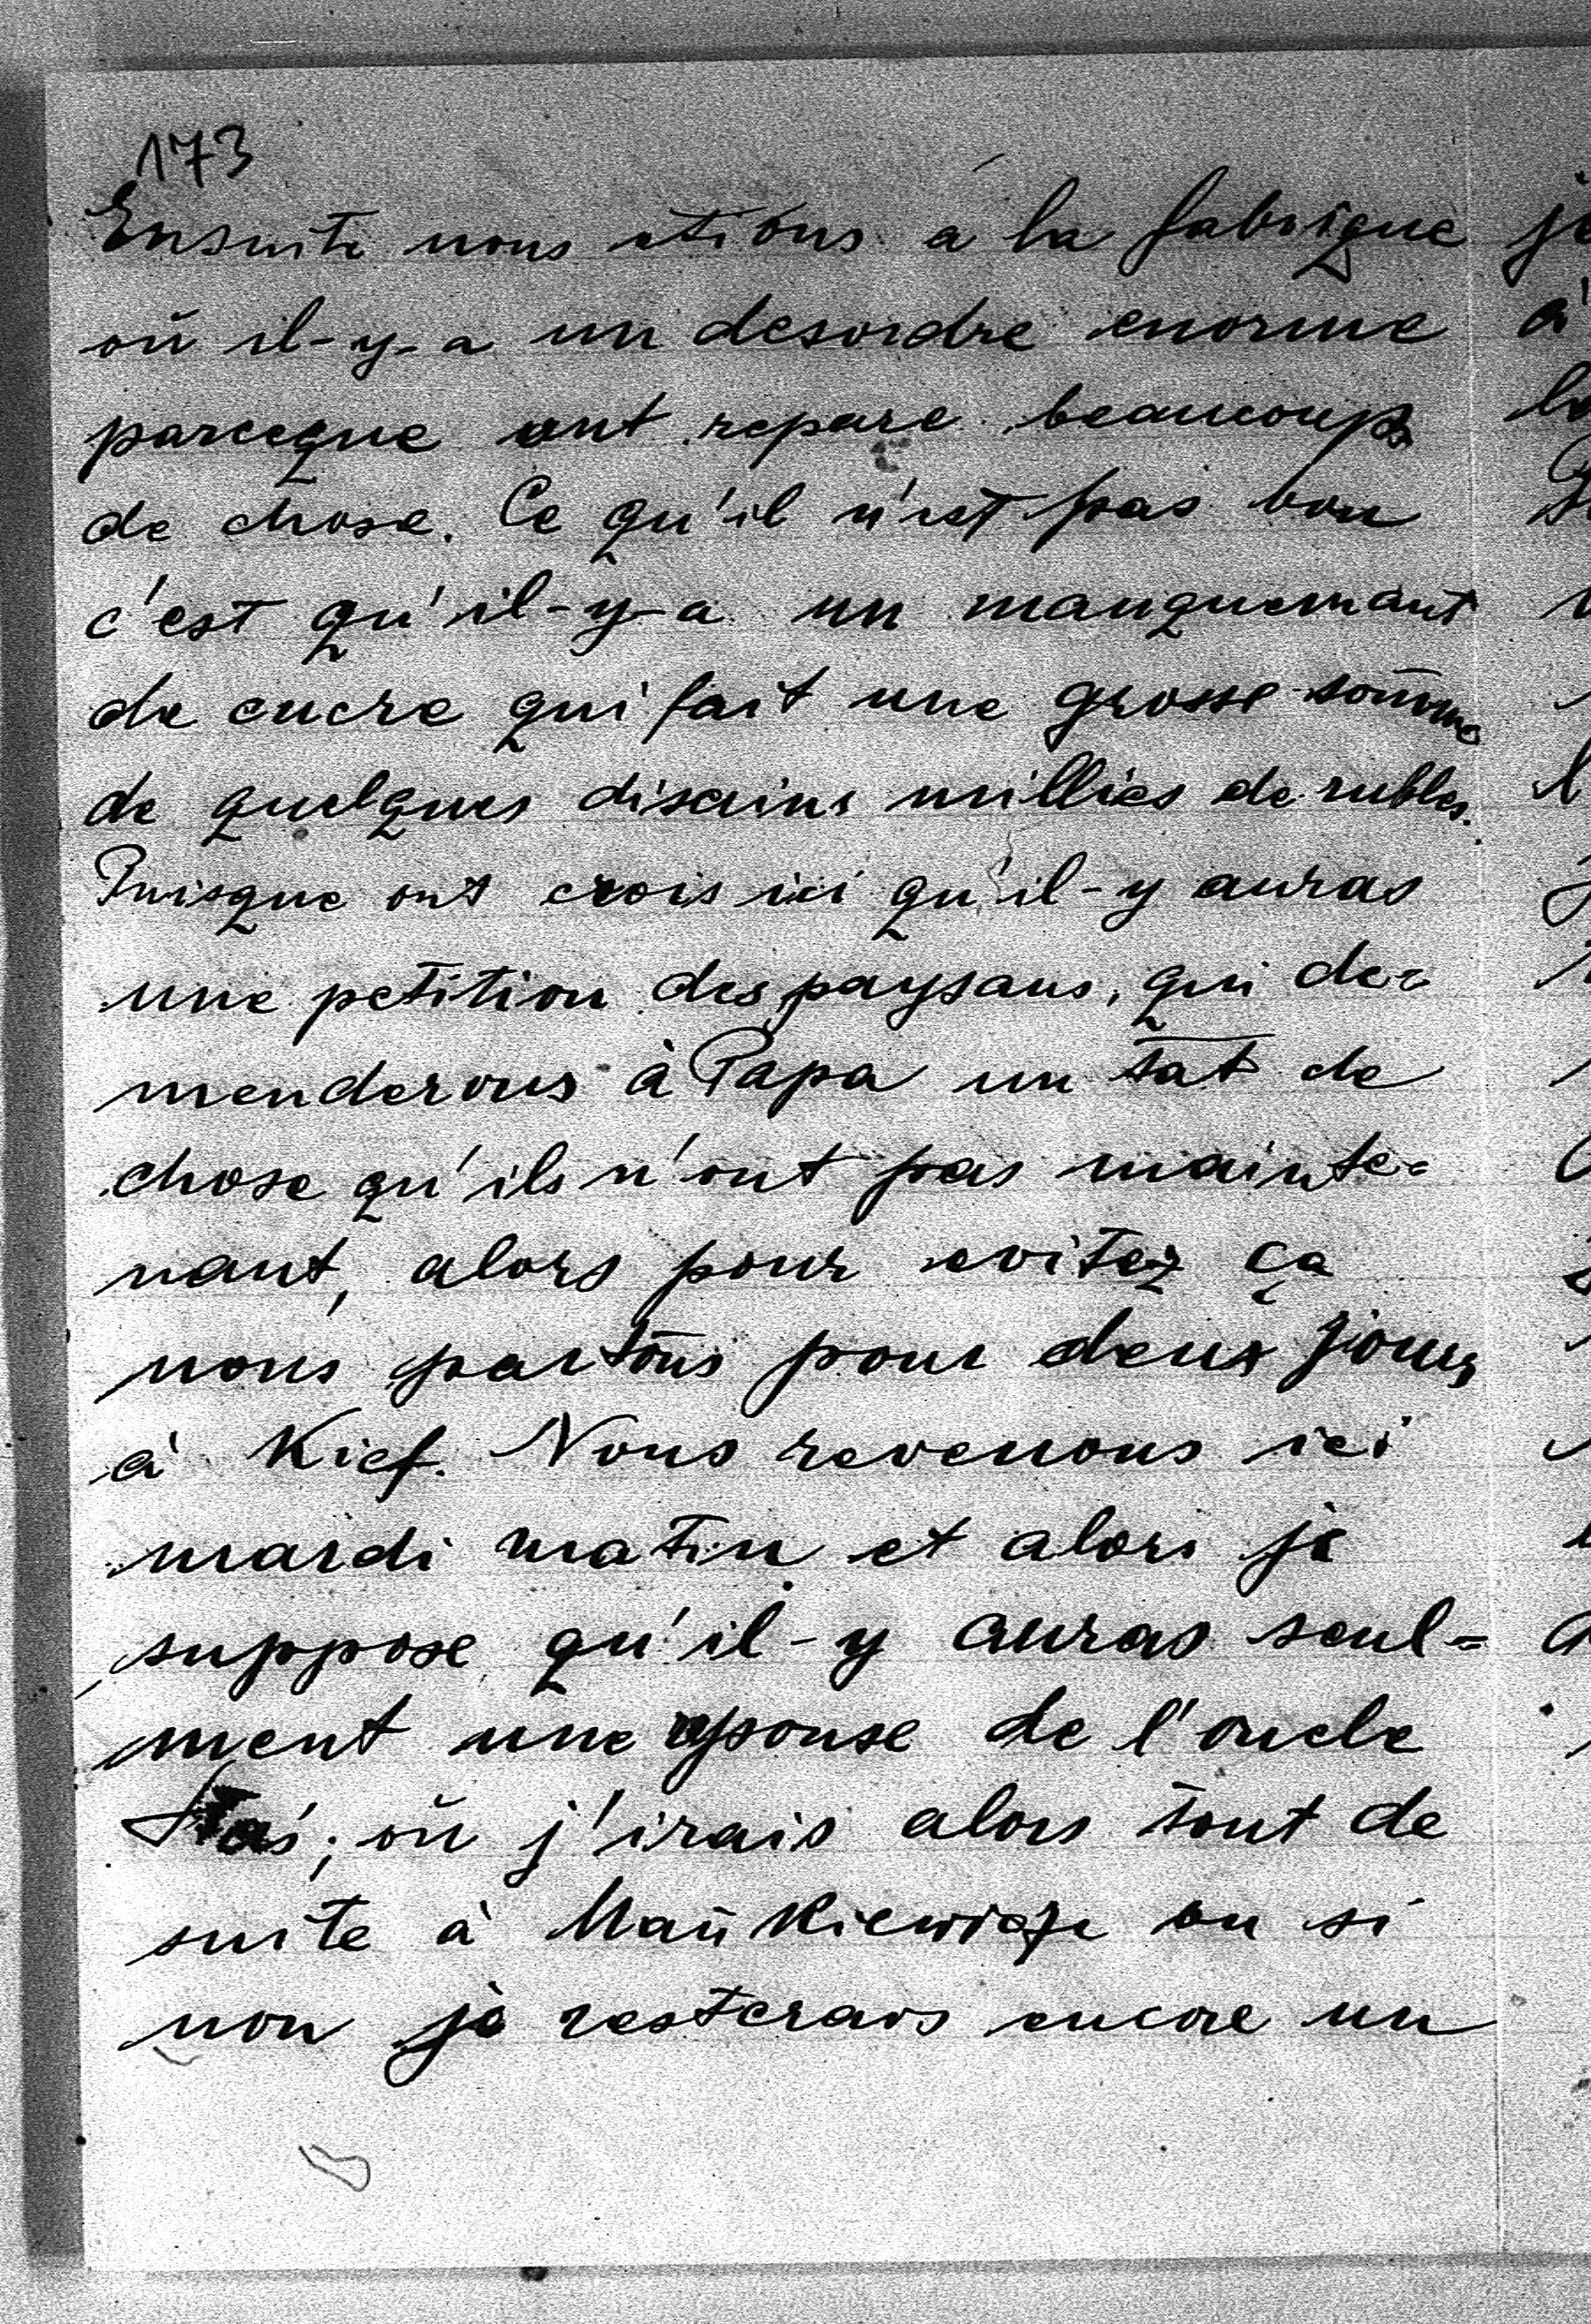 173
Ensuite nous etions a la fabrique
où il-y-a un desordre enorme
parceque ont repare beaucoups
de chose. Ce qu'il n'est pas bon
c'est qu'il-y-a un manquemant
de cucre qui fait une grosse somme
de quelques disains milliés de rubles.
Puisque ont crois ici qu'il-y auras
une petition des paysans, qui de=
menderous à Papa un tat de
chose qu'ils n'ont pas mainte=
nant, alors pour evitez ça
nous partons pour deux jours
à Kief. Nous revenons ici
mardi matin et alors je
suppose qu'il-y auras seul=
ment une reponse de l'oncle
Staś; où j'irais alors tout de
suite à Mańkiewicze ou si
non je resterais encore un